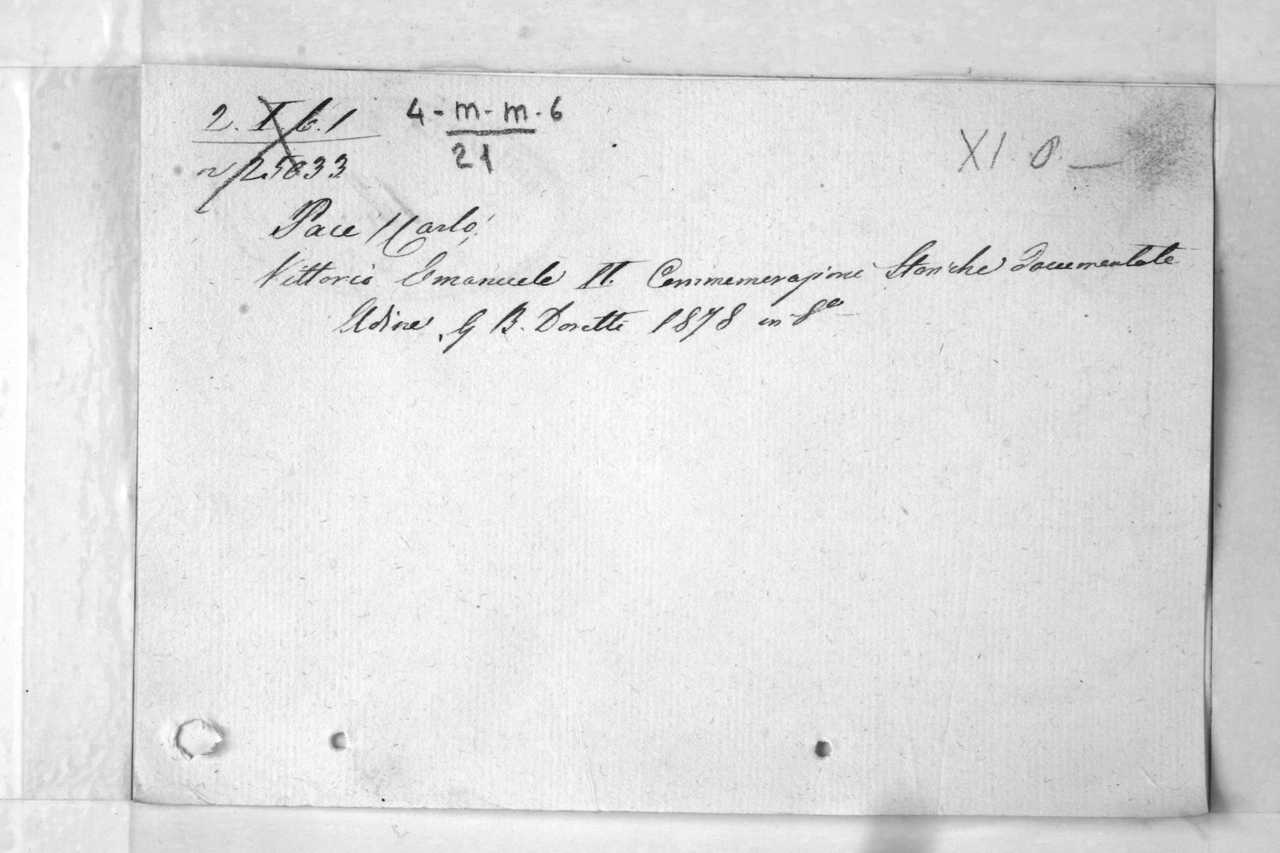 2. I. 6. 1
4-m-m-6
21
XI. 8.
n 25633
Pace Carlo,
Vittorio Emanuele II. Commemorazioni Storiche documentate
Udine, G B. Doretti 1878 in 8º